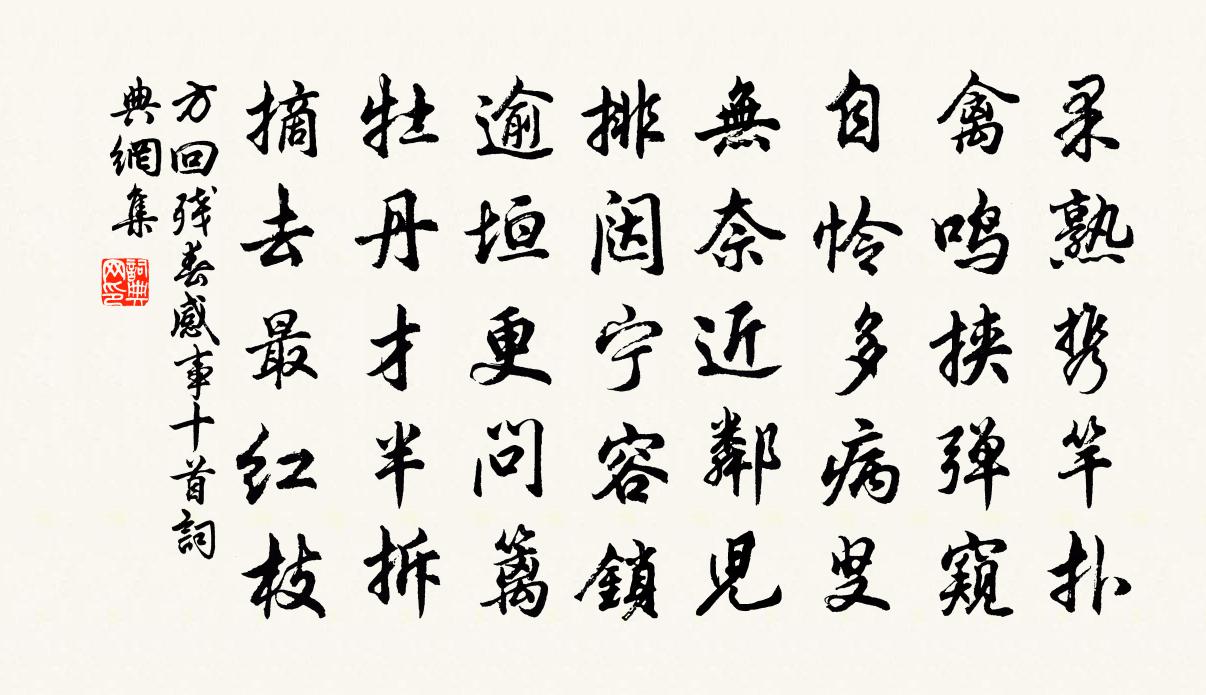 果熟携竿扑
禽鸣挟弹窥
自怜多病叟
無奈近鄰児
排闼宁容鎖
逾垣更问篱
牡丹才半拆
摘去最红枝
方回残春感事十首詞
典網集
詞典
网印